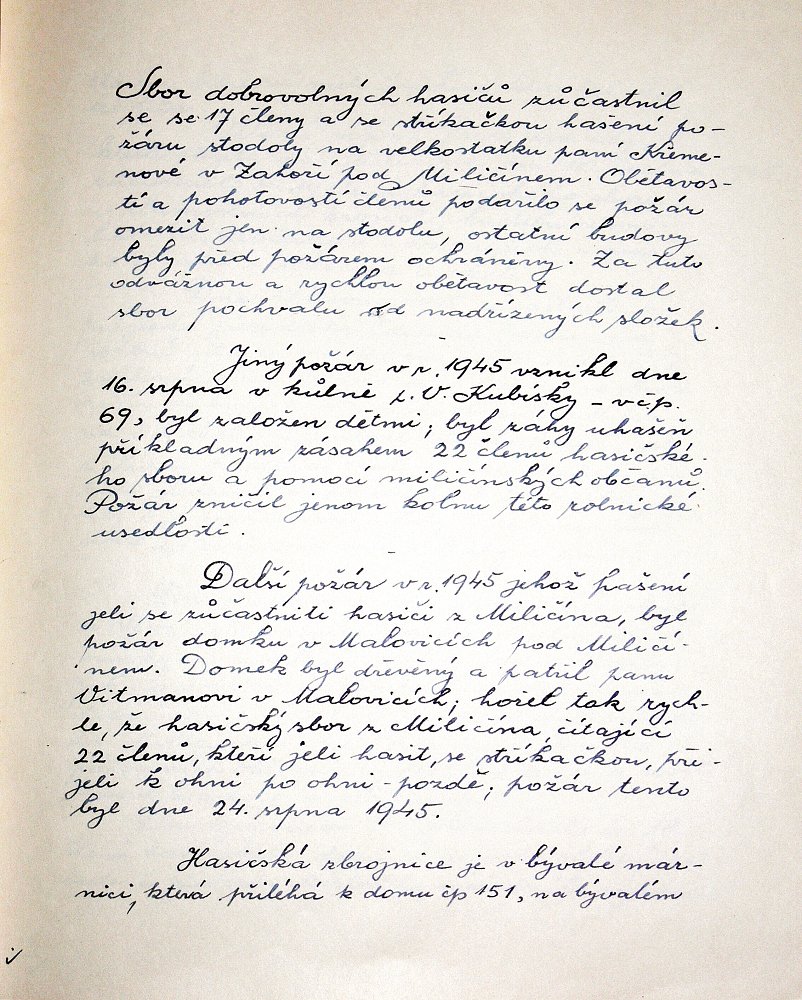 Sbor dobrovolných hasičů zůčastnil
se se 17 členy a se stříkačkou hašení po-
žáru stodoly na velkostatku paní Křeme-
nové v Zahoří pod Miličínem. Obětavos-
tí a pohotovostí členů podařilo se požár
omezit jen na stodolu, ostatní budovy
byly před požárem ochráněny. Za tuto
odvážnou a rychlou obětavost dostal
sbor pochvalu od nadřízených složek.
Jiný požár v r. 1945 vznikl dne
16. srpna v kůlně p. V. Kubísky - v čp.
69, byl založen dětmi; byl záhy uhašen
příkladným zásahem 22 členů hasičské-
ho sboru a pomocí miličínských občanů.
Požár zničil jenom kolnu této rolnické
usedlosti.
Další požár v r. 1945 jehož hašení
jeli se zůčastniti hasiči z Miličína, byl
požár domku v Malovicích pod Miličí-
nem. Domek byl dřevěný a patřil panu
Vitmanovi v Malovicích; hořel tak rych-
le, že hasičský sbor z Miličína, čítající
22 členů, kteří jeli hasit, se stříkačkou, při-
jeli k ohni po ohni - pozdě; požár tento
byl dne 24. srpna 1945.
Hasičská zbrojnice je v bývalé már-
nici, která přiléhá k domu čp 151, na bývalém